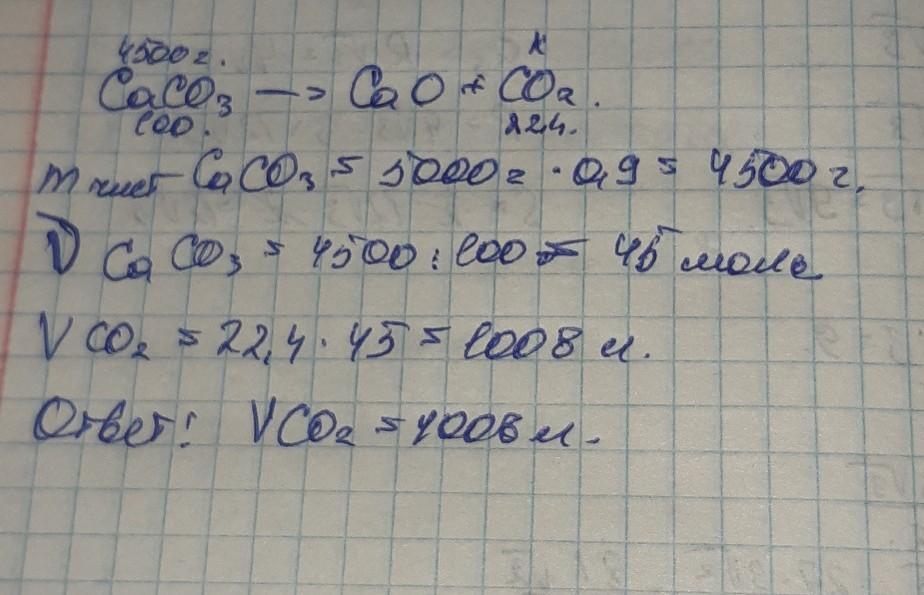 4500 г. x
CaCO₃ —> CaO + CO₂.
100. 22,4.
m чист CaCO₃ = 5000 г · 0,9 = 4500 г.
ν CaCO₃ = 4500 : 100 = 45 моль
V CO₂ = 22,4 · 45 = 1008 л.
Ответ: VCO₂ = 1008 л.